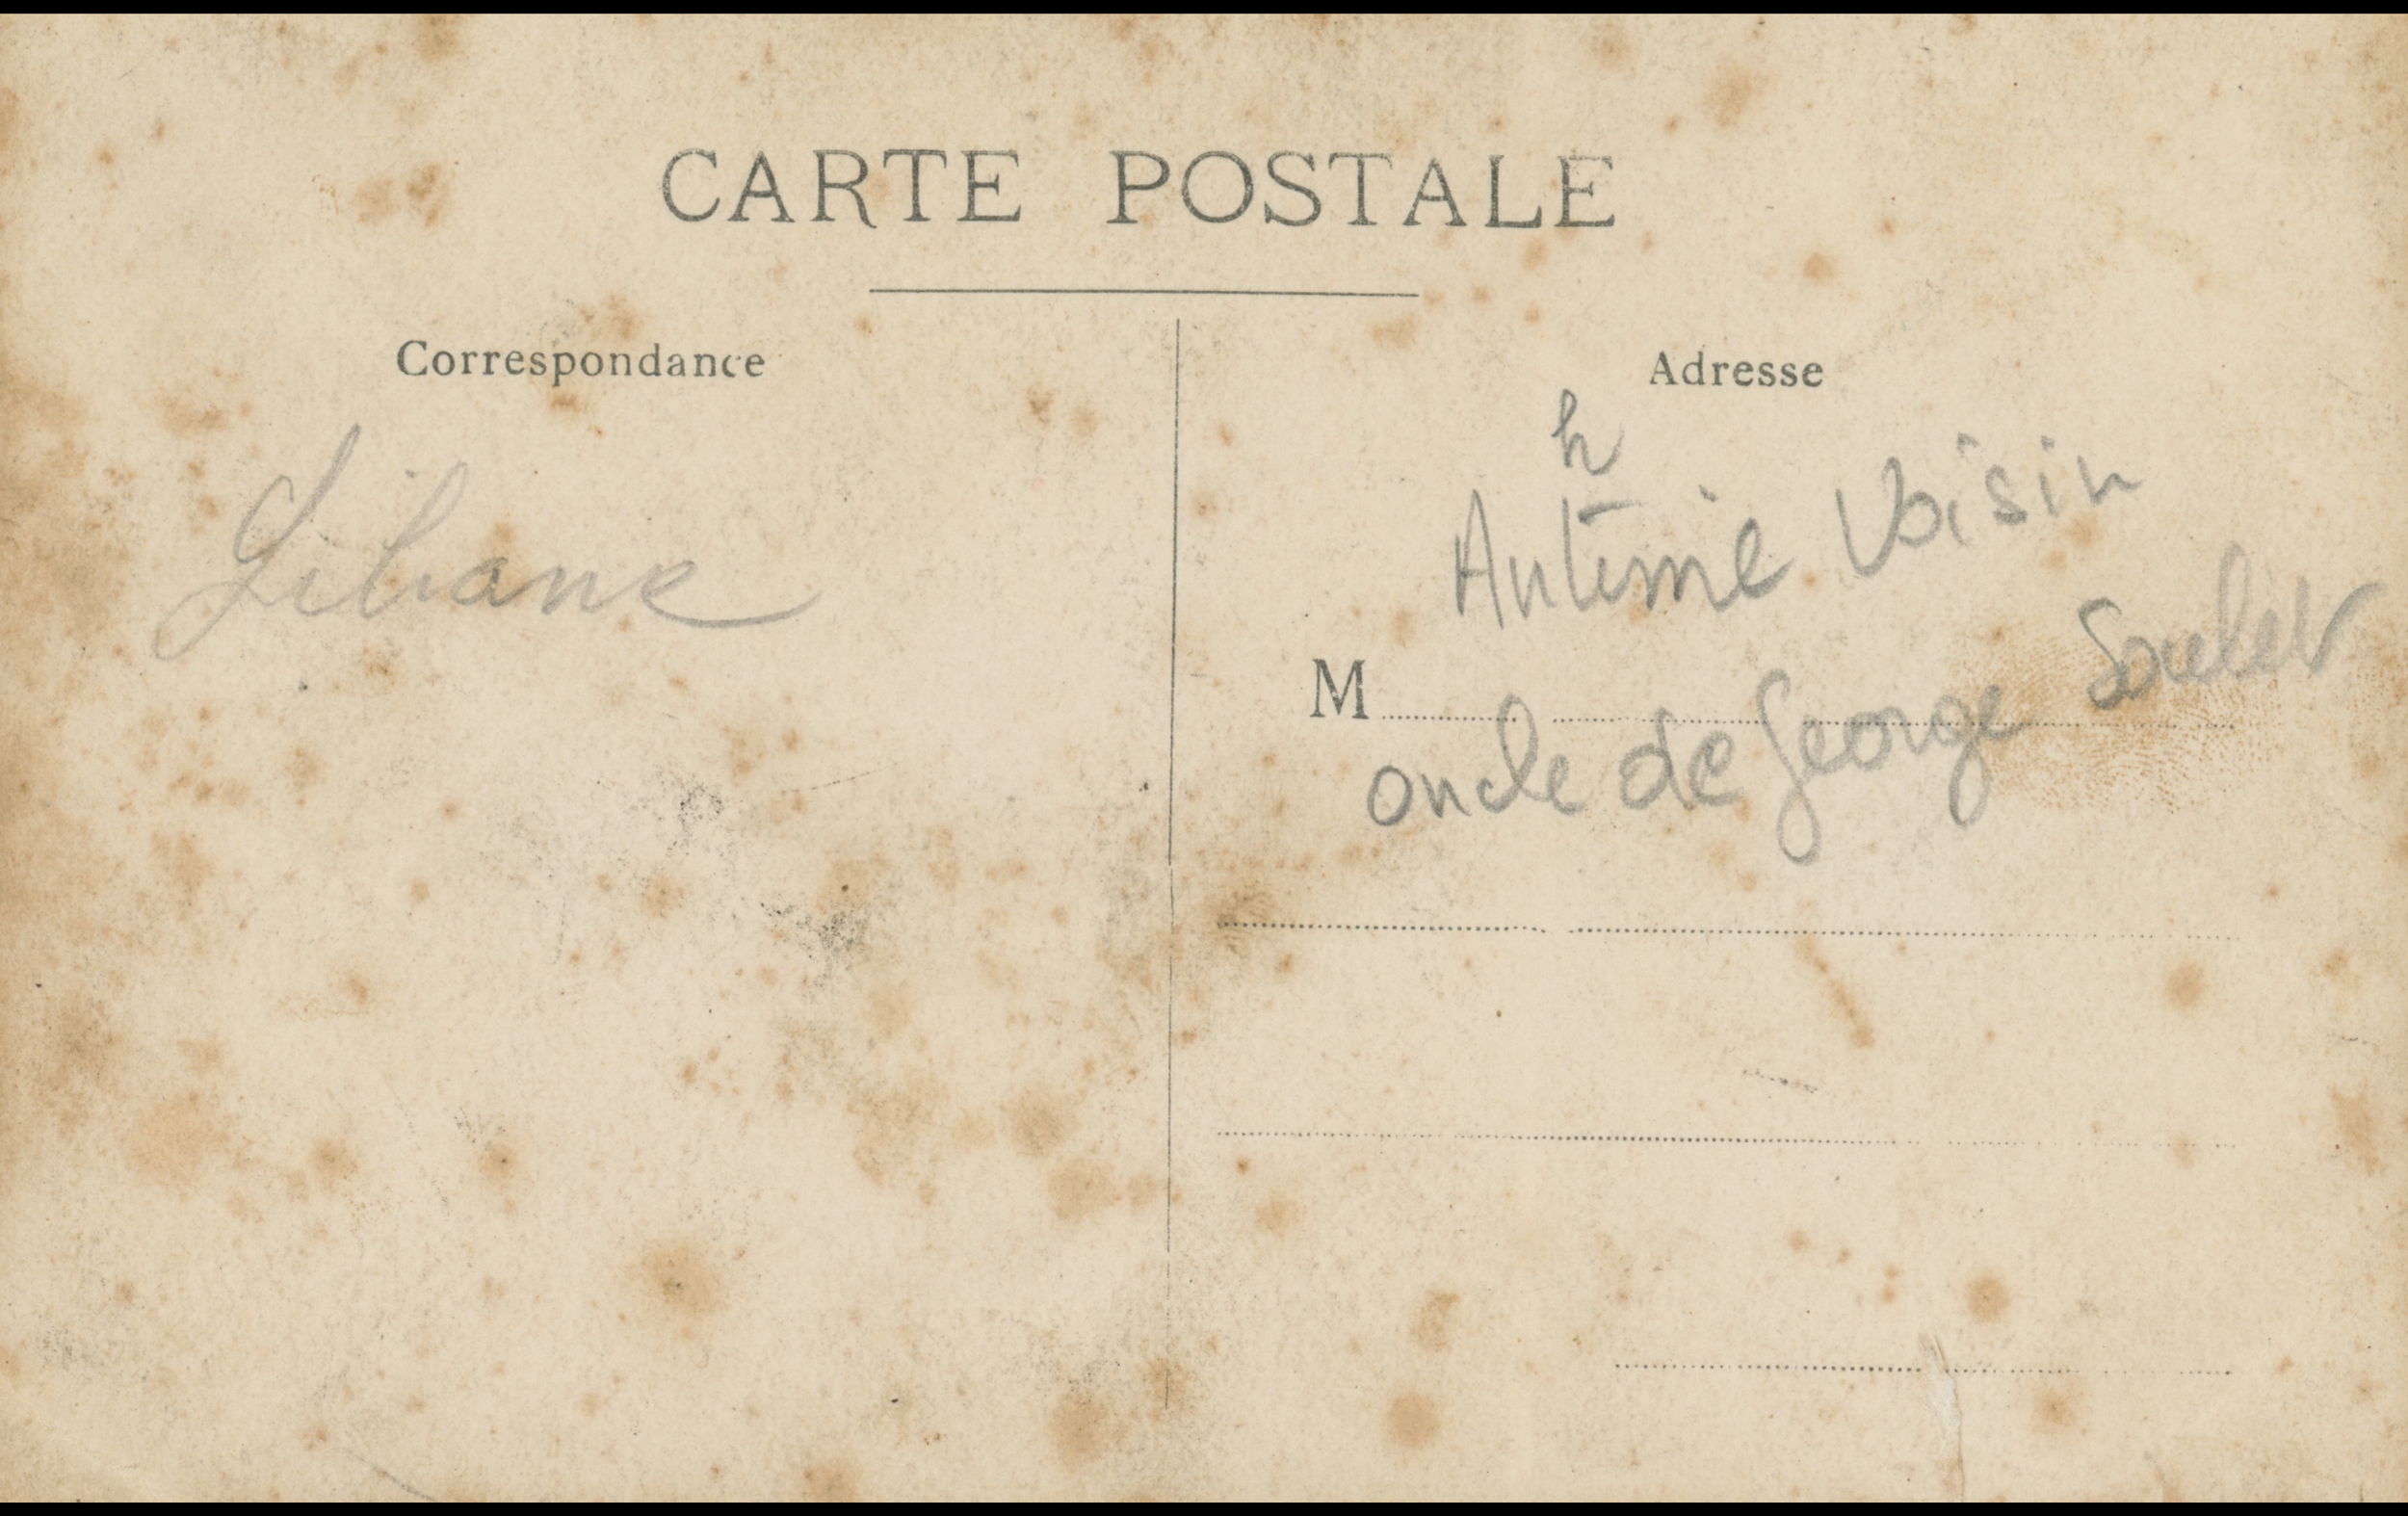 CARTE POSTALE
Correspondance
Adresse
Liliane
h
Antime Voisin
M
oncle de George Soulet